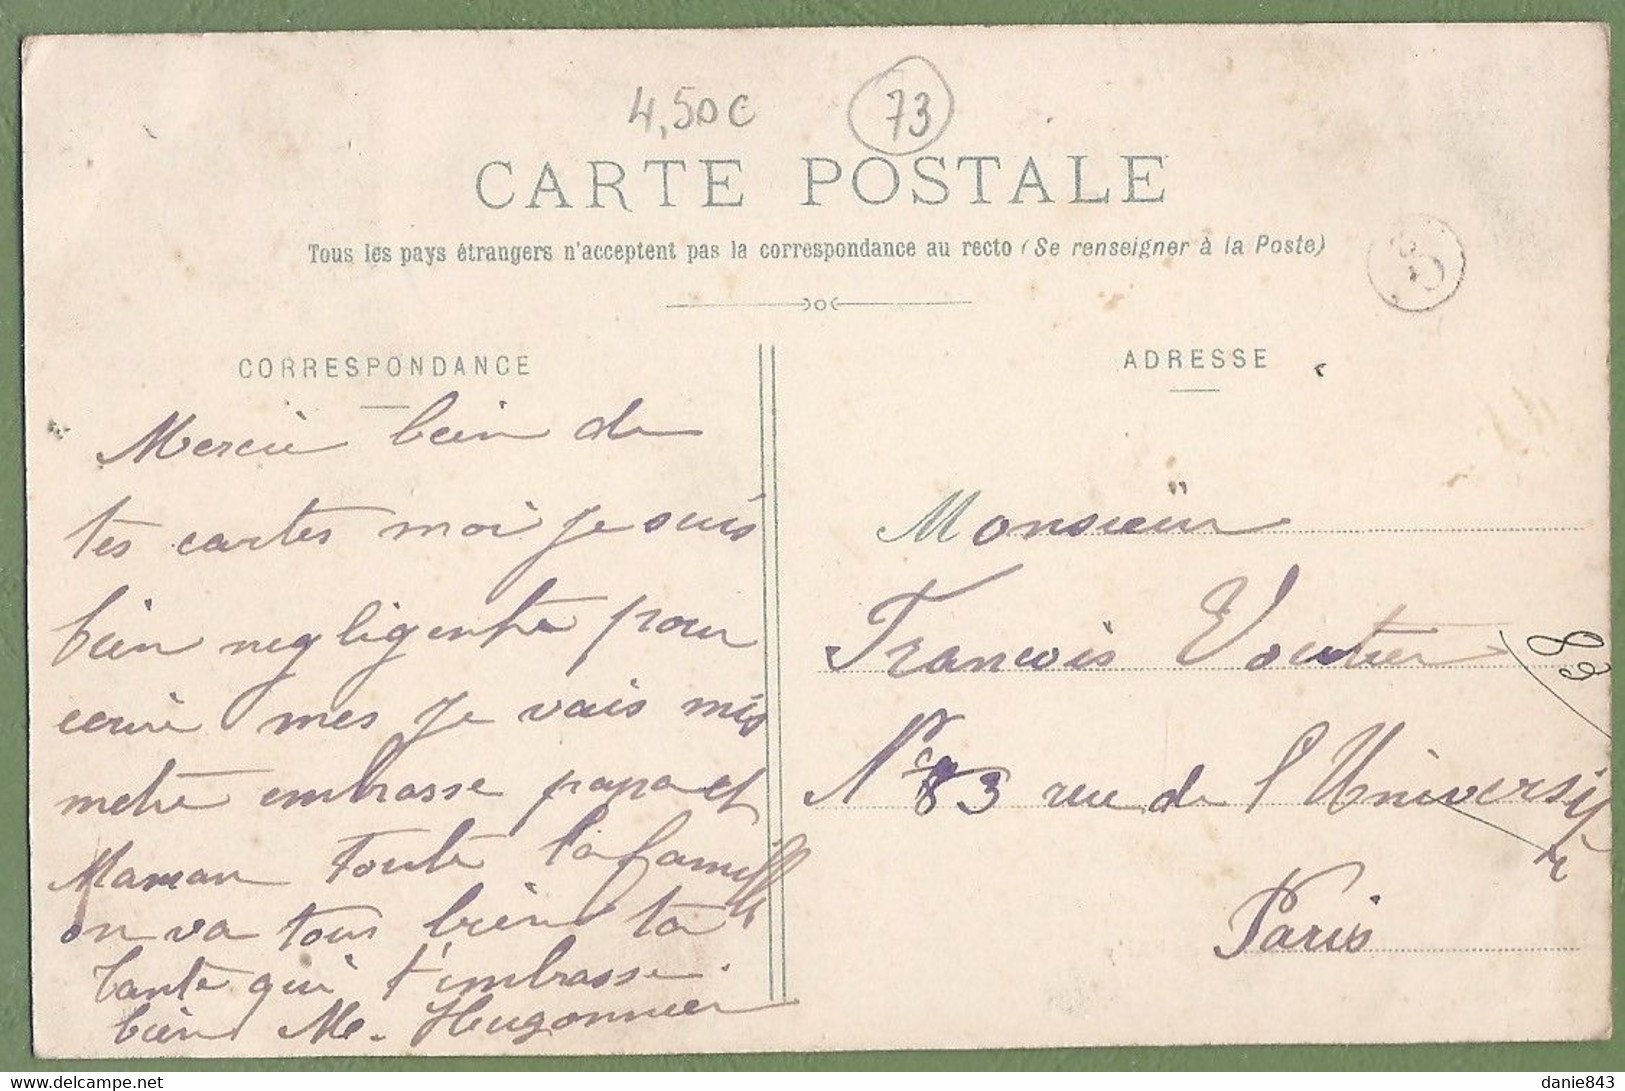 4,50€ 73
CARTE POSTALE
Tous les pays étrangers n'acceptent pas la correspondance au recto (Se renseigner à la Poste)
CORRESPONDANCE
Mercie bein de
tes cartes moi je suis
bien negligente pour
ecrire mes je vais mis
metre embrasse papa et
Maman toute la famille
on va tous bien ta
tante qui t'embrasse.
bien M. Hugonnier
ADRESSE
Monsieur
François Voutier
N° 83 rue de l'Université
Paris
83
delcampe.net
danie843